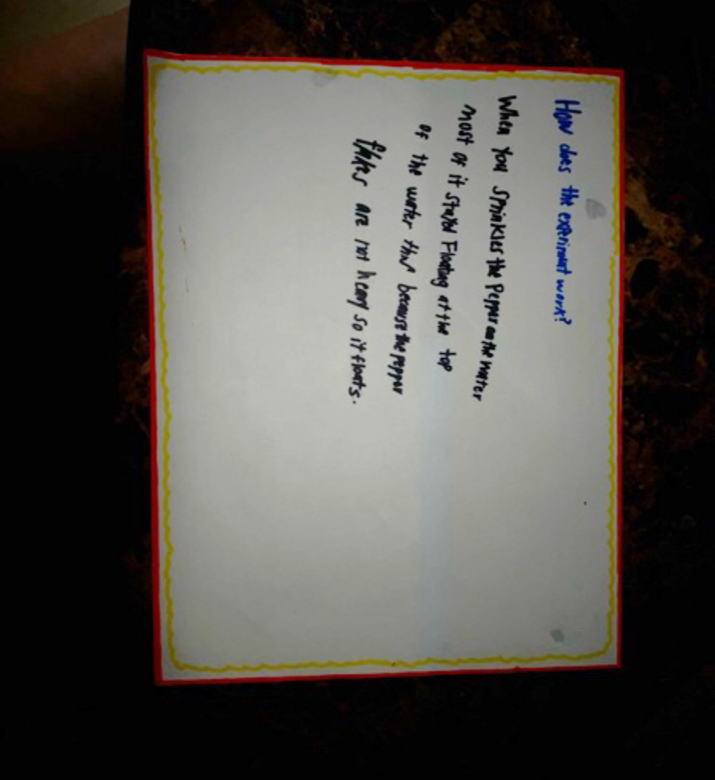 How does the experiment work?
When you sprinkles the Pepper on the water
most of it stayed Floating at the top
of the water this because the pepper
flakes are not heavy so it floats.